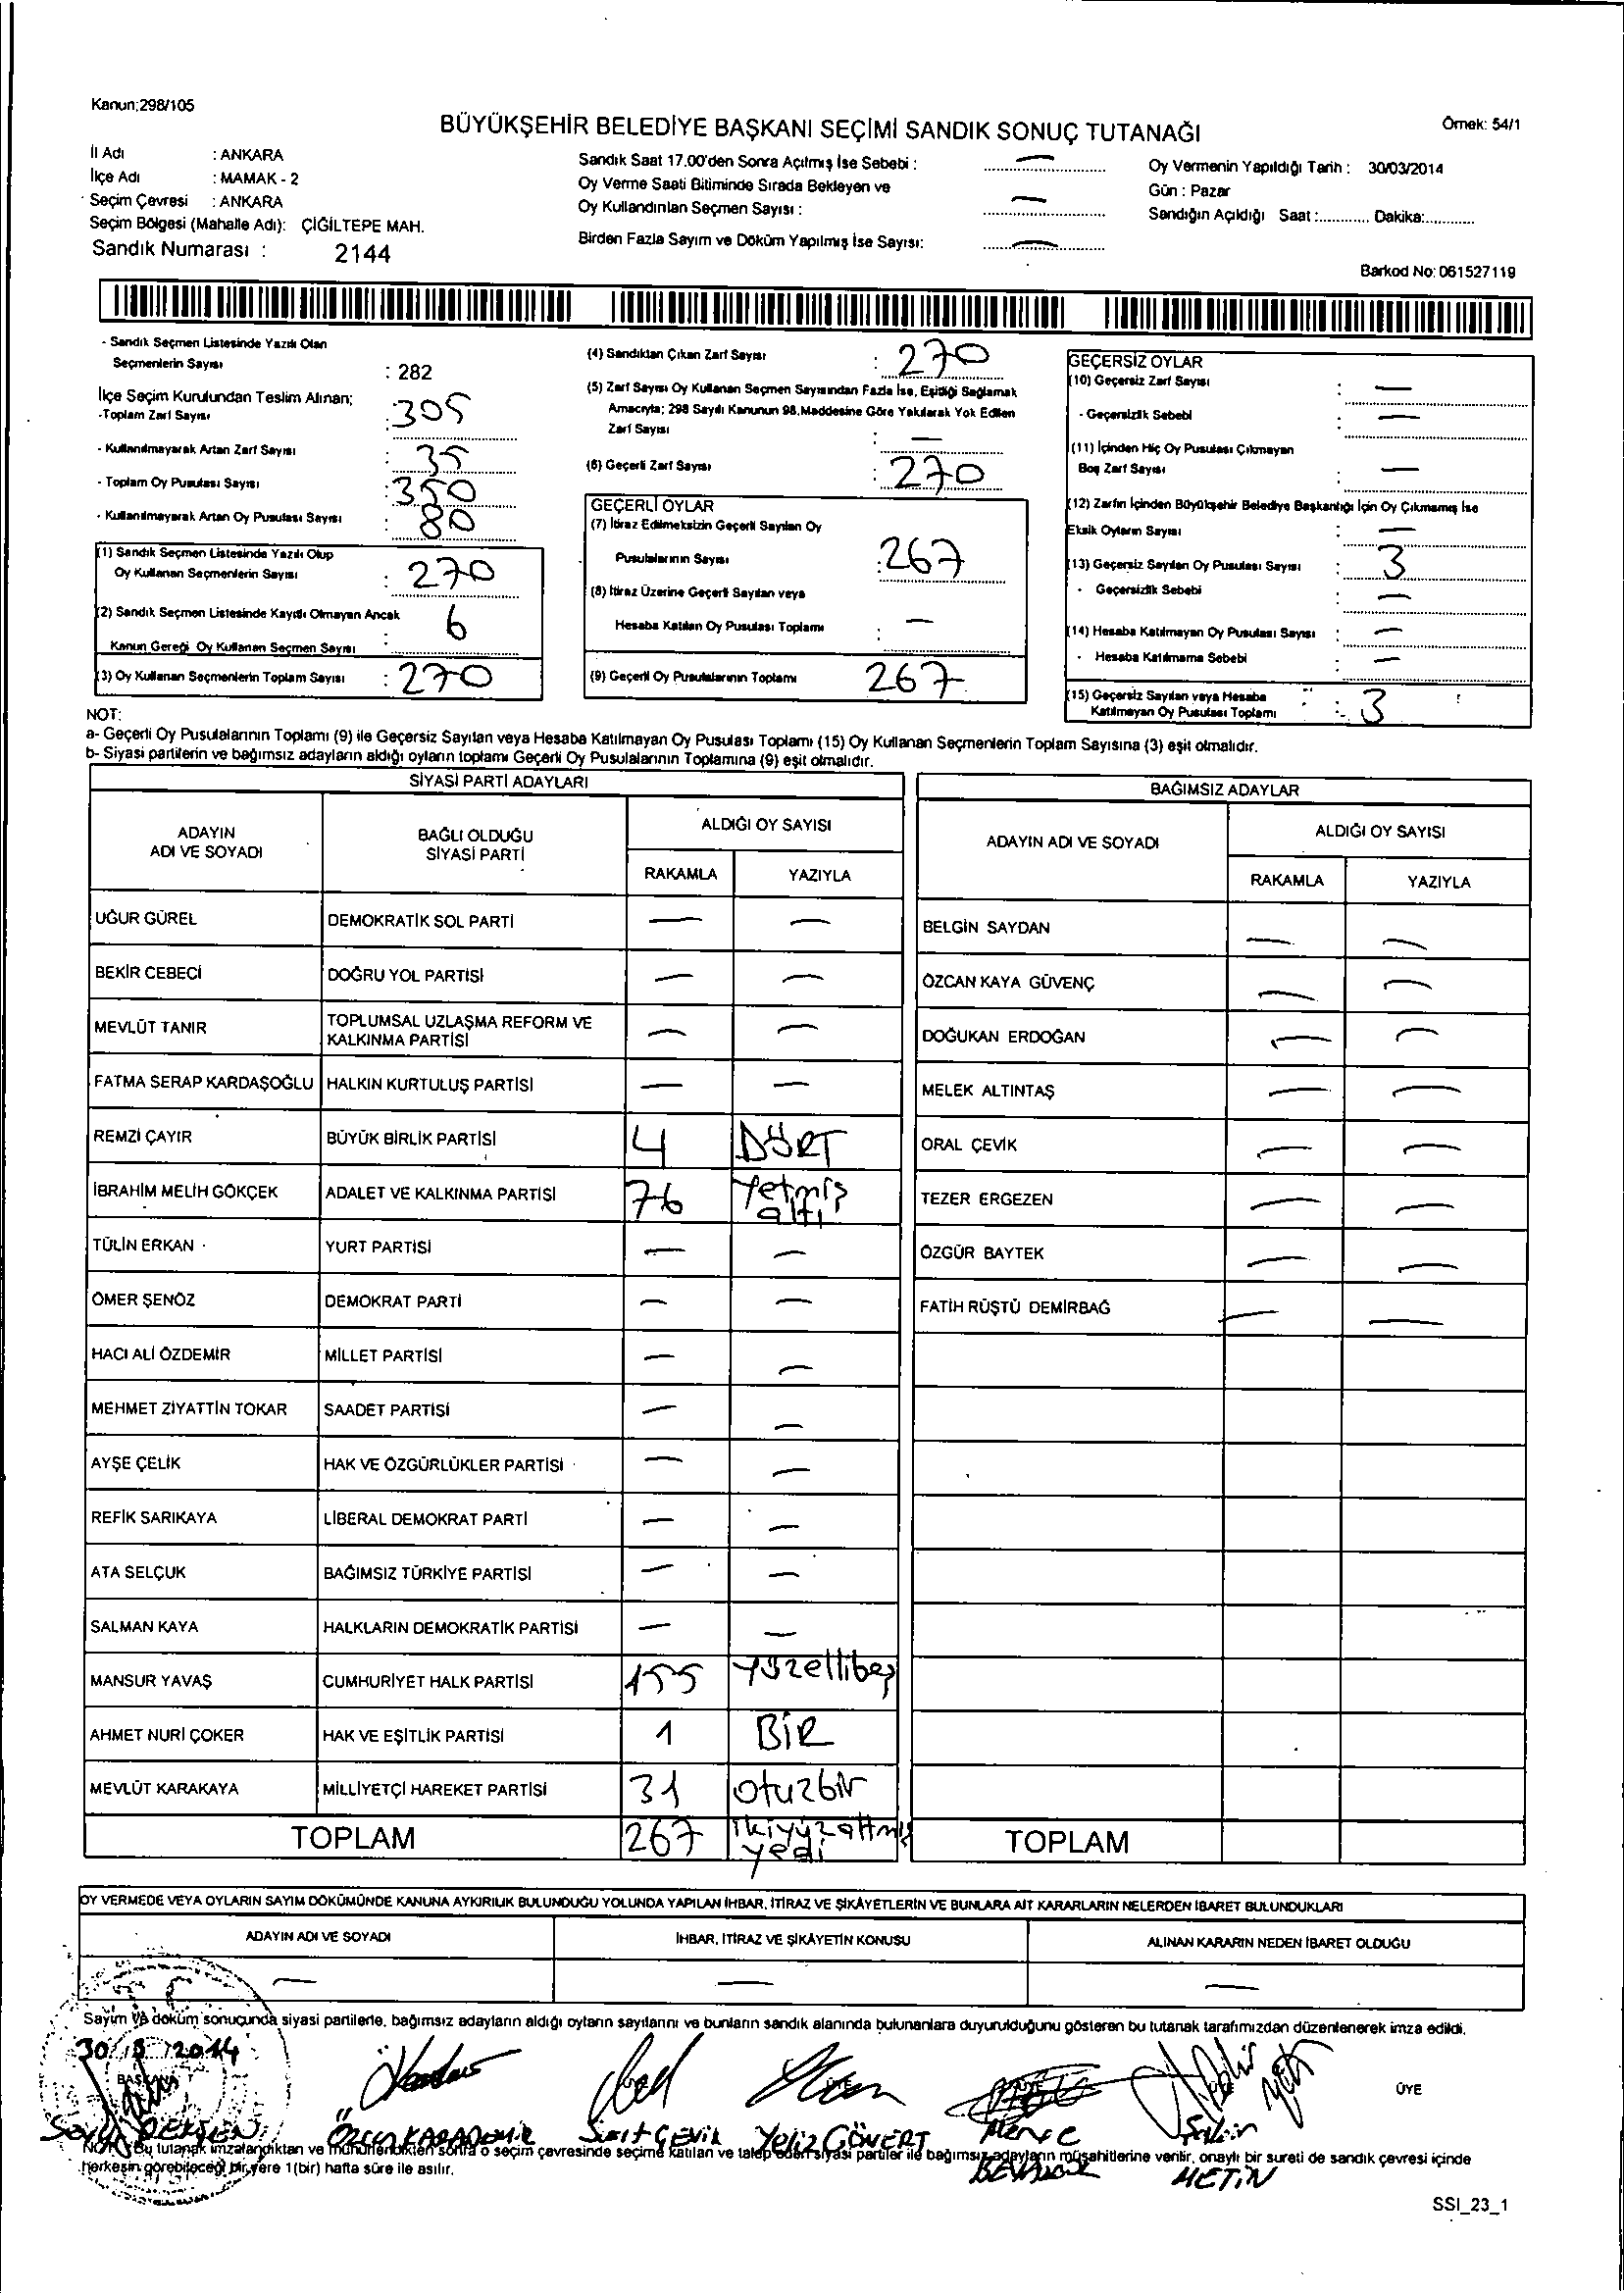 Kanun;298/105
BÜYÜKŞEHİR BELEDİYE BAŞKANI SEÇİMİ SANDIK SONUÇ TUTANAĞI
Örnek: 54/1
İl Adı : ANKARA
İlçe Adı : MAMAK - 2
Seçim Çevresi : ANKARA
Seçim Bölgesi (Mahalle Adı): ÇİĞİLTEPE MAH.
Sandık Numarası : 2144
Sandık Saat 17.00'den Sonra Açılmış İse Sebebi : —
Oy Verme Saati Bitiminde Sırada Bekleyen ve
Oy Kullandırılan Seçmen Sayısı : —
Birden Fazla Sayım ve Döküm Yapılmış İse Sayısı: —
Oy Vermenin Yapıldığı Tarih : 30/03/2014
Gün : Pazar
Sandığın Açıldığı Saat :............ Dakika:.............
Barkod No: 061527119
- Sandık Seçmen Listesinde Yazılı Olan
Seçmenlerin Sayısı : 282
İlçe Seçim Kurulundan Teslim Alınan;
-Toplam Zarf Sayısı : 305
- Kullanılmayarak Artan Zarf Sayısı : 35
- Toplam Oy Pusulası Sayısı : 350
- Kullanılmayarak Artan Oy Pusulası Sayısı : 80
(1) Sandık Seçmen Listesinde Yazılı Olup
Oy Kullanan Seçmenlerin Sayısı : 270
(2) Sandık Seçmen Listesinde Kayıtlı Olmayan Ancak
Kanun Gereği Oy Kullanan Seçmen Sayısı : 6
(3) Oy Kullanan Seçmenlerin Toplam Sayısı : 270
(4) Sandıktan Çıkan Zarf Sayısı : 270
(5) Zarf Sayısı Oy Kullanan Seçmen Sayısından Fazla İse, Eşitliği Sağlamak
Amacıyla; 298 Sayılı Kanunun 98.Maddesine Göre Yakılarak Yok Edilen
Zarf Sayısı : —
(6) Geçerli Zarf Sayısı : 270
GEÇERLİ OYLAR
(7) İtiraz Edilmeksizin Geçerli Sayılan Oy
Pusulalarının Sayısı : 267
(8) İtiraz Üzerine Geçerli Sayılan veya
Hesaba Katılan Oy Pusulası Toplamı : —
(9) Geçerli Oy Pusulalarının Toplamı 267
GEÇERSİZ OYLAR
(10) Geçersiz Zarf Sayısı : —
- Geçersizlik Sebebi : —
(11) İçinden Hiç Oy Pusulası Çıkmayan
Boş Zarf Sayısı : —
(12) Zarfın İçinden Büyükşehir Belediye Başkanlığı İçin Oy Çıkmamış İse
Eksik Oyların Sayısı : —
(13) Geçersiz Sayılan Oy Pusulası Sayısı : 3
- Geçersizlik Sebebi : —
(14) Hesaba Katılmayan Oy Pusulası Sayısı : —
- Hesaba Katılmama Sebebi : —
(15) Geçersiz Sayılan veya Hesaba
Katılmayan Oy Pusulası Toplamı : 3
NOT:
a- Geçerli Oy Pusulalarının Toplamı (9) ile Geçersiz Sayılan veya Hesaba Katılmayan Oy Pusulası Toplamı (15) Oy Kullanan Seçmenlerin Toplam Sayısına (3) eşit olmalıdır.
b- Siyasi partilerin ve bağımsız adayların aldığı oyların toplamı Geçerli Oy Pusulalarının Toplamına (9) eşit olmalıdır.
SİYASİ PARTİ ADAYLARI
ADAYIN ADI VE SOYADI BAĞLI OLDUĞU SİYASİ PARTİ ALDIĞI OY SAYISI
RAKAMLA YAZIYLA
UĞUR GÜREL DEMOKRATİK SOL PARTİ — —
BEKİR CEBECİ DOĞRU YOL PARTİSİ — —
MEVLÜT TANIR TOPLUMSAL UZLAŞMA REFORM VE KALKINMA PARTİSİ — —
FATMA SERAP KARDAŞOĞLU HALKIN KURTULUŞ PARTİSİ — —
REMZİ ÇAYIR BÜYÜK BİRLİK PARTİSİ 4 DÖRT
İBRAHİM MELİH GÖKÇEK ADALET VE KALKINMA PARTİSİ 76 Yetmiş altı
TÜLİN ERKAN YURT PARTİSİ — —
ÖMER ŞENÖZ DEMOKRAT PARTİ — —
HACI ALİ ÖZDEMİR MİLLET PARTİSİ — —
MEHMET ZİYATTİN TOKAR SAADET PARTİSİ — —
AYŞE ÇELİK HAK VE ÖZGÜRLÜKLER PARTİSİ — —
REFİK SARIKAYA LİBERAL DEMOKRAT PARTİ — —
ATA SELÇUK BAĞIMSIZ TÜRKİYE PARTİSİ — —
SALMAN KAYA HALKLARIN DEMOKRATİK PARTİSİ — —
MANSUR YAVAŞ CUMHURİYET HALK PARTİSİ 155 yüzellibeş
AHMET NURİ ÇOKER HAK VE EŞİTLİK PARTİSİ 1 BİR
MEVLÜT KARAKAYA MİLLİYETÇİ HAREKET PARTİSİ 31 otuzbir
TOPLAM 267 ikiyüzaltmış yedi
BAĞIMSIZ ADAYLAR
ADAYIN ADI VE SOYADI ALDIĞI OY SAYISI
RAKAMLA YAZIYLA
BELGİN SAYDAN — —
ÖZCAN KAYA GÜVENÇ — —
DOĞUKAN ERDOĞAN — —
MELEK ALTINTAŞ — —
ORAL ÇEVİK — —
TEZER ERGEZEN — —
ÖZGÜR BAYTEK — —
FATİH RÜŞTÜ DEMİRBAĞ — —
TOPLAM
OY VERMEDE VEYA OYLARIN SAYIM DÖKÜMÜNDE KANUNA AYKIRILIK BULUNDUĞU YOLUNDA YAPILAN İHBAR, İTİRAZ VE ŞİKÂYETLERİN VE BUNLARA AİT KARARLARIN NELERDEN İBARET BULUNDUKLARI
ADAYIN ADI VE SOYADI İHBAR, İTİRAZ VE ŞİKÂYETİN KONUSU ALINAN KARARIN NEDEN İBARET OLDUĞU
— — —
Sayım ve döküm sonuçunda siyasi partilerle, bağımsız adayların aldığı oyların sayılarını ve bunların sandık alanında bulunanlara duyurulduğunu gösteren bu tutanak tarafımızdan düzenlenerek imza edildi.
30/3/2014
BAŞKAN
ÜYE
ÖZCAN KARADEMİR Suat ÇEVİK Yeliz GÖNERT Merve Sabir
METİN
NOT: Bu tutanak imzalandıktan ve mühürlendikten sonra o seçim çevresinde seçime katılan ve talep eden siyasi partiler ile bağımsız adayların müşahitlerine verilir, onaylı bir sureti de sandık çevresi içinde
herkesin görebileceği bir yere 1(bir) hafta süre ile asılır.
SSI_23_1